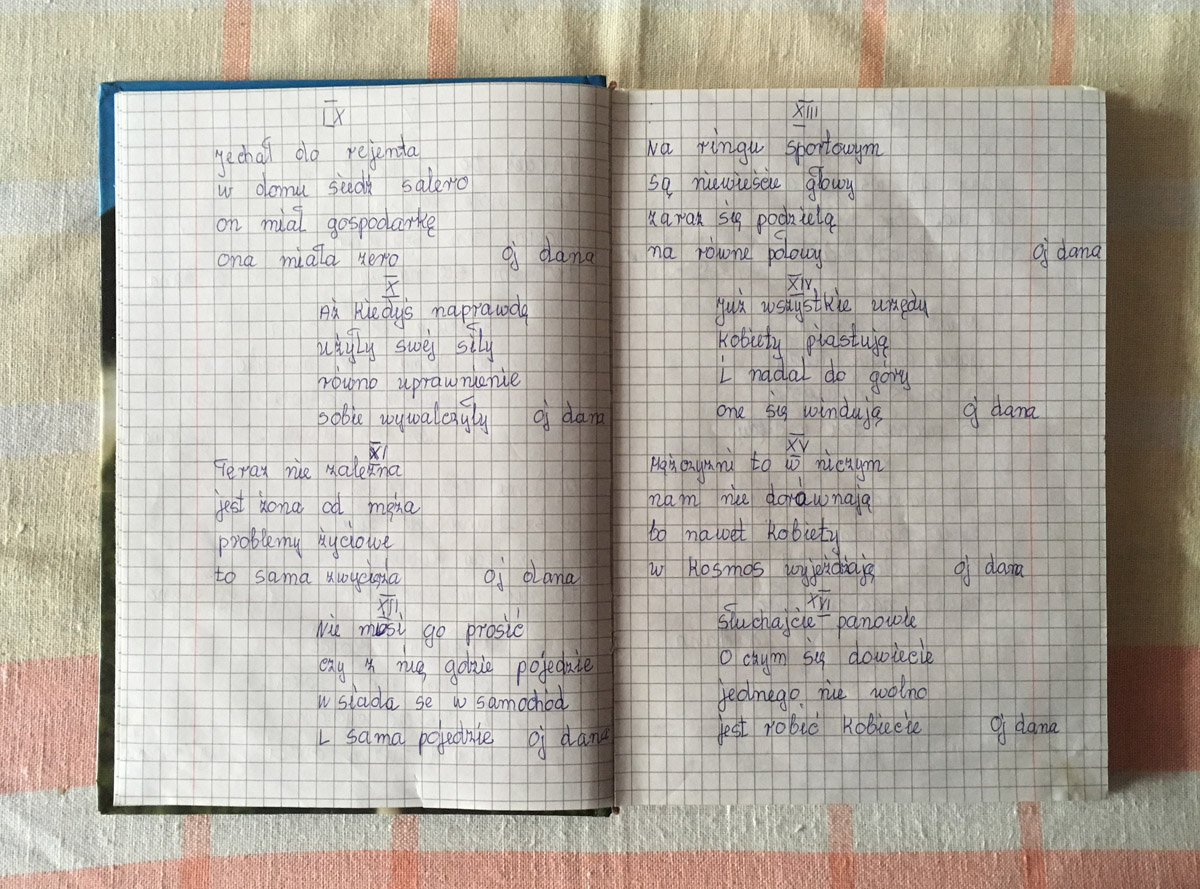 IX
jechał do rejenta
w domu siedź salero
on miał gospodarkę
ona miała zero oj dana
X
Aż kiedyś naprawdę
użyły swej siły
równo uprawnienie
sobie wywalczyły oj dana
XI
Teraz nie zależna
jest żona od męża
problemy życiowe
to sama zwycięża oj dana
XII
Nie musi go prosić
czy z nią gdzie pojedzie
w siada se w samochód
i sama pojedzie oj dana
XIII
Na ringu sportowym
są niewieście głowy
zaraz się podzielą
na równe połowy oj dana
XIV
Już wszystkie urzędy
kobiety piastują
i nadal do góry
one się windują oj dana
XV
Mężczyzni to w niczym
nam nie dorównają
bo nawet kobiety
w kosmos wyjeżdżają oj dana
XVI
Słuchajcie panowie
O czym się dowiecie
jednego nie wolno
jest robić kobiecie oj dana